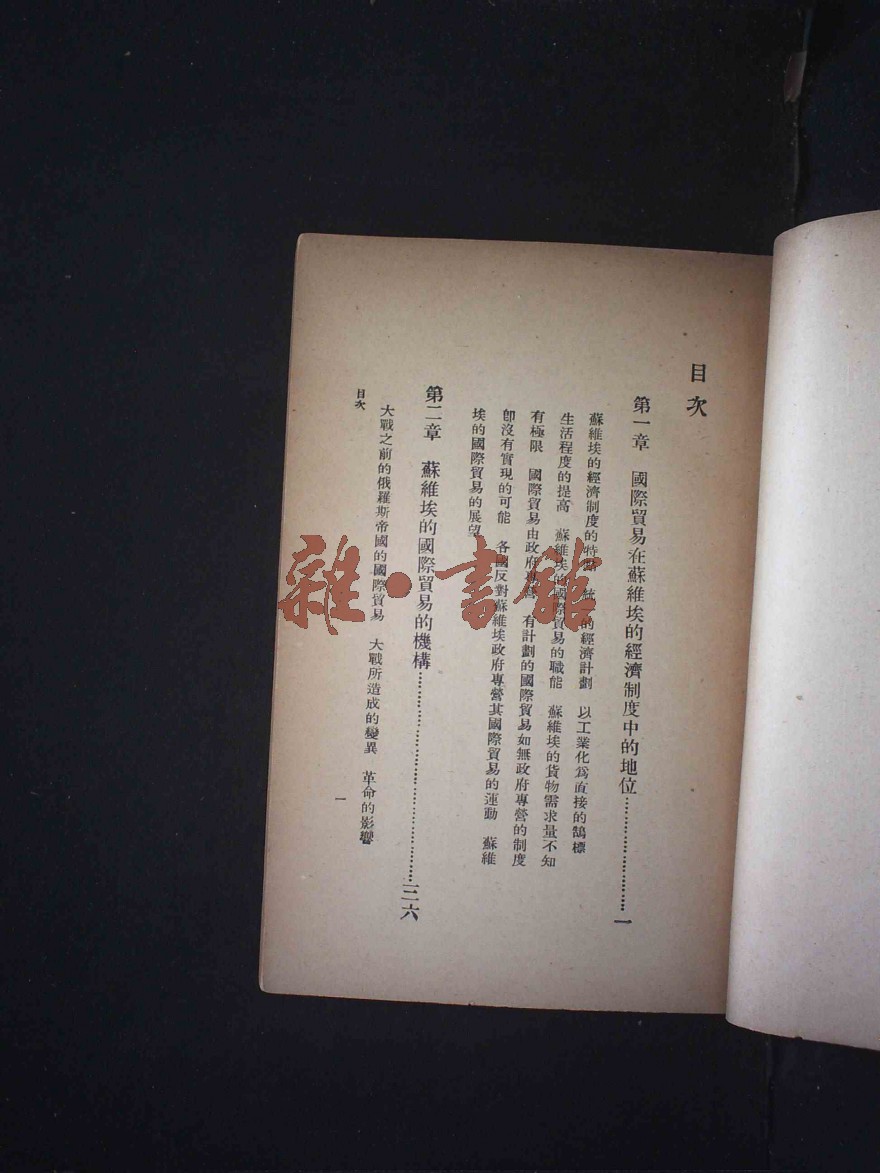 目次
第一章　國際貿易在蘇維埃的經濟制度中的地位……………………一
蘇維埃的經濟制度的特點　統一的經濟計劃　以工業化爲直接的鵠標
生活程度的提高　蘇維埃的國際貿易的職能　蘇維埃的貨物需求量不知
有極限　國際貿易由政府專營　有計劃的國際貿易如無政府專營的制度
卽沒有實現的可能　各國反對蘇維埃政府專營其國際貿易的運動　蘇維
埃的國際貿易的展望
第二章　蘇維埃的國際貿易的機構……………………三六
大戰之前的俄羅斯帝國的國際貿易　大戰所造成的變異　革命的影響
目次
一
雜·書館